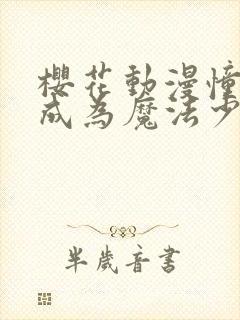 櫻花動漫憧
成為魔法少
半歲音書